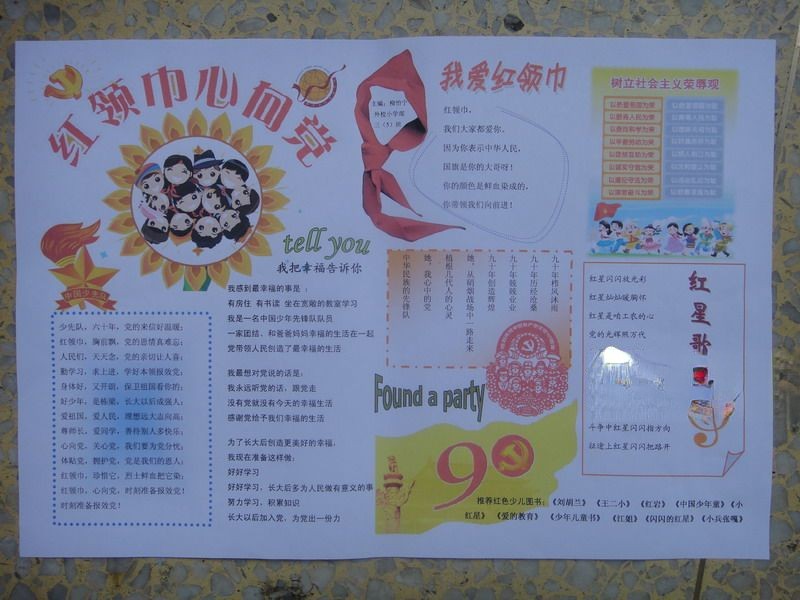 红领巾心向党
主编：
外校小学部
三（5）班
我爱红领巾
红领巾，
我们大家都爱你。
因为你表示中华人民，
国旗是你的大哥呀！
你的颜色是鲜血染成的，
你带领我们向前进！
树立社会主义荣辱观
以热爱祖国为荣
以服务人民为荣
以崇尚科学为荣
以辛勤劳动为荣
以团结互助为荣
以诚实守信为荣
以遵纪守法为荣
以艰苦奋斗为荣
中国少年先锋队
少先队，六十年，党的来信好温暖；
红领巾，胸前飘，党的恩情真难忘；
人民们，天天念，党的亲切让人喜；
勤学习，求上进，学好本领报效党；
身体好，又开朗，保卫祖国看你的；
好少年，是栋梁，长大以后成强人；
爱祖国，爱人民，理想远大志向高；
尊师长，爱同学，善待别人多快乐；
心向党，关心党，我们要为党分忧；
体贴党，拥护党，党是我们的恩人；
红领巾，珍惜它，烈士鲜血把它染；
红领巾，心向党，时刻准备报效党！
时刻准备报效党！
tell you
我把幸福告诉你
我感到最幸福的事是：
有房住 有书读 坐在宽敞的教室学习
我是一名中国少年先锋队队员
一家团结、和爸爸妈妈幸福的生活在一起
党带领人民创造了最幸福的生活
我最想对党说的话是：
我永远听党的话，跟党走
没有党就没有今天的幸福生活
感谢党给予我们幸福的生活
为了长大后创造更美好的幸福，
我现在准备这样做：
好好学习
好好学习，长大后多为人民做有意义的事
努力学习，积累知识
长大以后加入党，为党出一份力
九十年栉风沐雨
九十年历经沧桑
九十年兢兢业业
九十年创造辉煌
她，从硝烟战场中一路走来
植根几代人的心灵
她，我心中的党
中华民族的先锋队
Found a party
90
红星歌
红星闪闪放光彩
红星灿灿暖胸怀
红星是咱工农的心
党的光辉照万代
斗争中红星闪闪指方向
征途上红星闪闪把路开
推荐红色少儿图书：《刘胡兰》 《王二小》 《红岩》 《中国少年童》《小
红星》 《爱的教育》 《少年儿童书》 《江姐》《闪闪的红星》《小兵张嘎》